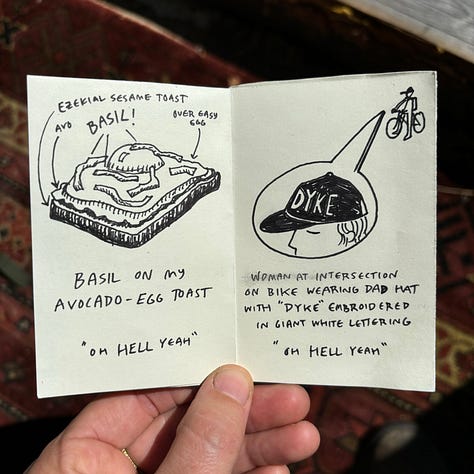 EZEKIAL SESAME TOAST
AVO
BASIL!
OVER EASY
EGG
BASIL ON MY
AVOCADO-EGG TOAST
"OH HELL YEAH"
DYKE
WOMAN AT INTERSECTION
ON BIKE WEARING DAD HAT
WITH "DYKE" EMBROIDERED
IN GIANT WHITE LETTERING
"OH HELL YEAH"